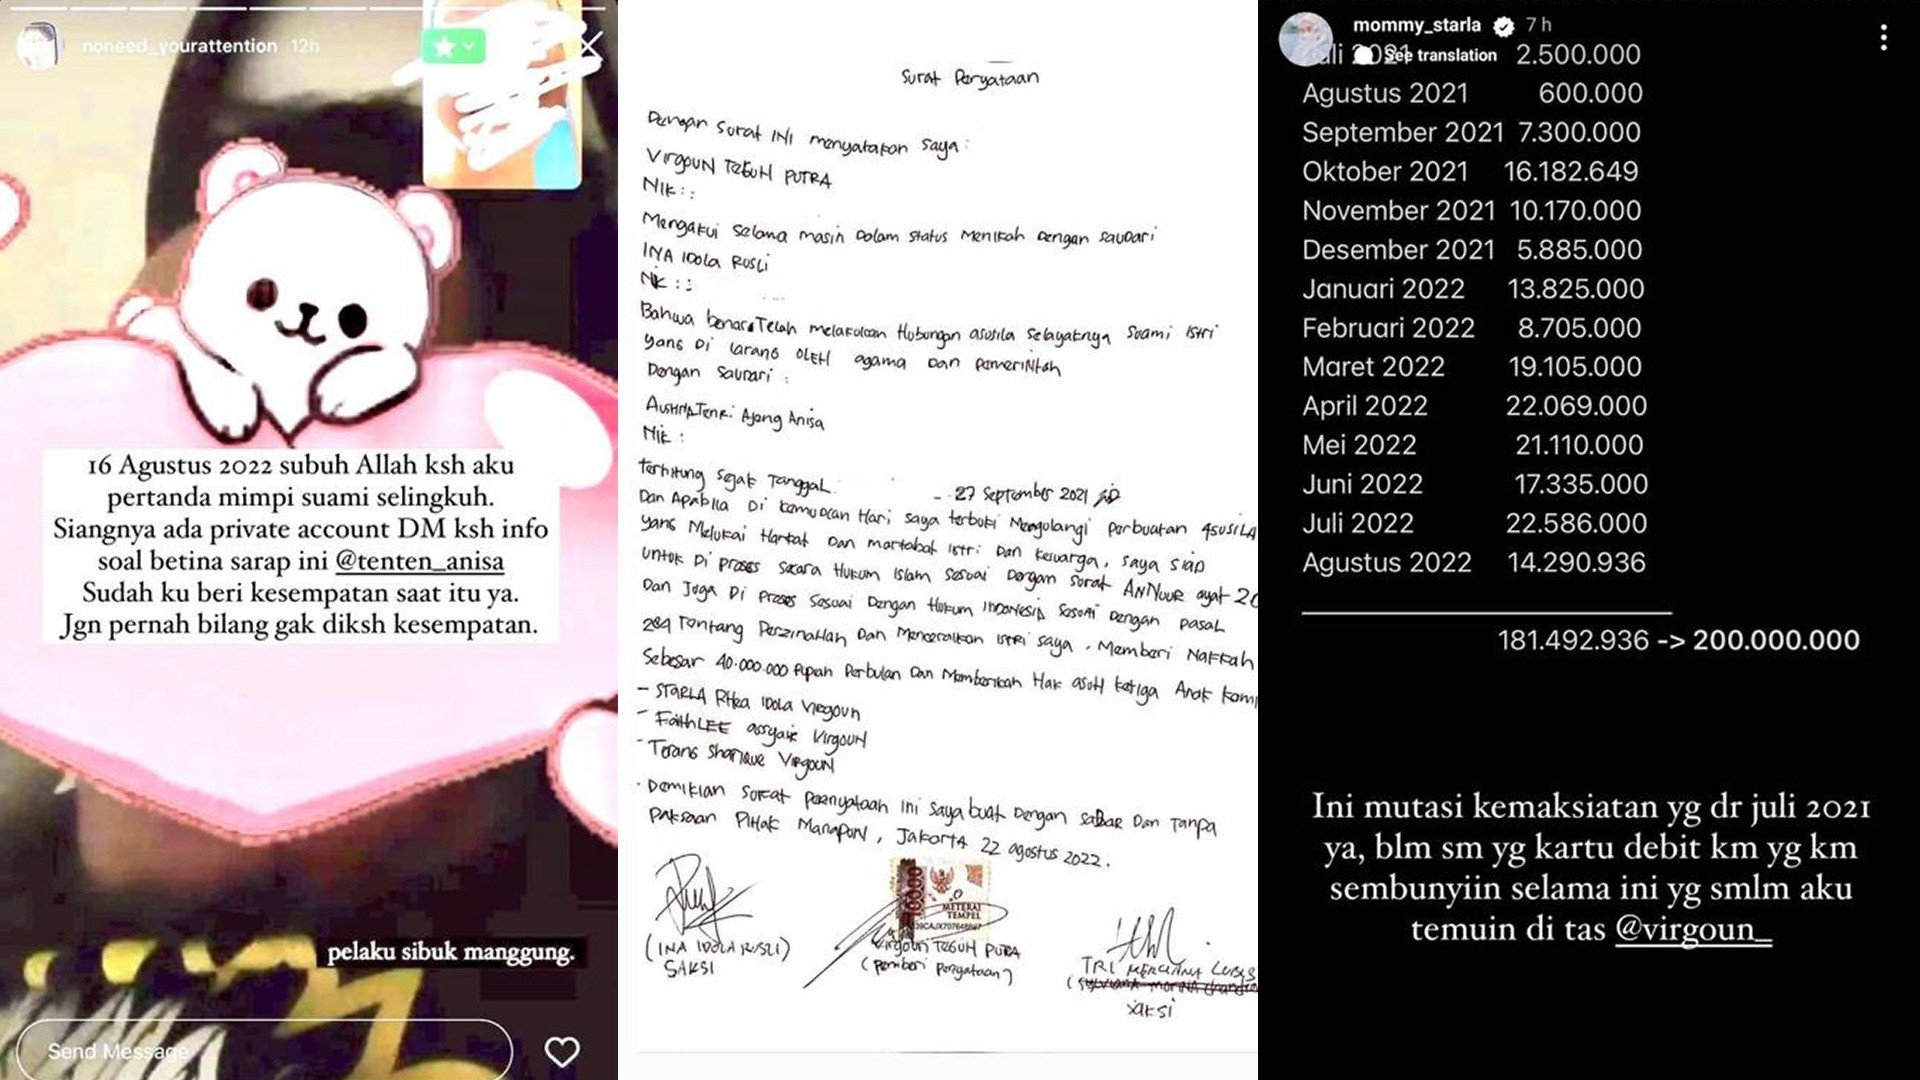 noneed_yourattention 12h
16 Agustus 2022 subuh Allah ksh aku
pertanda mimpi suami selingkuh.
Siangnya ada private account DM ksh info
soal betina sarap ini @tenten_anisa
Sudah ku beri kesempatan saat itu ya.
Jgn pernah bilang gak diksh kesempatan.
pelaku sibuk manggung.
Send Message
Surat Peryataan
Dengan Surat INI menyatakan saya :
VIRGOUN TEGUH PUTRA
NIK : :
Mengakui selama masih Dalam status Menikah Dengan saudari
INA IDOLA RUSLI
NIK : :
Bahwa benar Telah melakukan Hubungan asusila selayaknya Suami Istri
yang Di larang OLEH agama Dan pemerintah
Dengan Saudari :
Tenri Ajeng Anisa
NIK :
terhitung sejak Tanggal - 27 September 2021
Dan Apabila Di kemudian Hari, saya terbukti Mengulangi perbuatan asusila
yang Melukai Harkat Dan martabat Istri Dan keluarga, saya siap
untuk Di proses secara Hukum Islam sesuai Dengan surat ANNUUR ayat 20
Dan Juga Di proses sesuai Dengan Hukum INDONESIA sesuai Dengan pasal
284 Tentang Perzinahan Dan Menceraikan istri saya, Memberi Nafkah
Sebesar 40.000.000 Rupiah Perbulan Dan Memberikan Hak asuh ketiga Anak kami
- STARLA RHea IDOLA VIRGOUN
- FaithLEE assyair VIRGOUN
- Terang Sharique VIRGOUN
Demikian surat peernyataan ini saya buat Dengan saDar Dan Tanpa
paksaan PIHAK ManapuN, Jakarta 22 agostus 2022.
10000
METERAI
TEMPEL
(INA IDOLA RUSLI)
SAKSI
Virgoun TEGUH PUTRA
(pemberi peryataan)
TRI MERCIANA LUBIS
SAKSI
mommy_starla 7 h
See translation
Juli 2021 2.500.000
Agustus 2021 600.000
September 2021 7.300.000
Oktober 2021 16.182.649
November 2021 10.170.000
Desember 2021 5.885.000
Januari 2022 13.825.000
Februari 2022 8.705.000
Maret 2022 19.105.000
April 2022 22.069.000
Mei 2022 21.110.000
Juni 2022 17.335.000
Juli 2022 22.586.000
Agustus 2022 14.290.936
181.492.936 -> 200.000.000
Ini mutasi kemaksiatan yg dr juli 2021
ya, blm sm yg kartu debit km yg km
sembunyiin selama ini yg smlm aku
temuin di tas @virgoun_